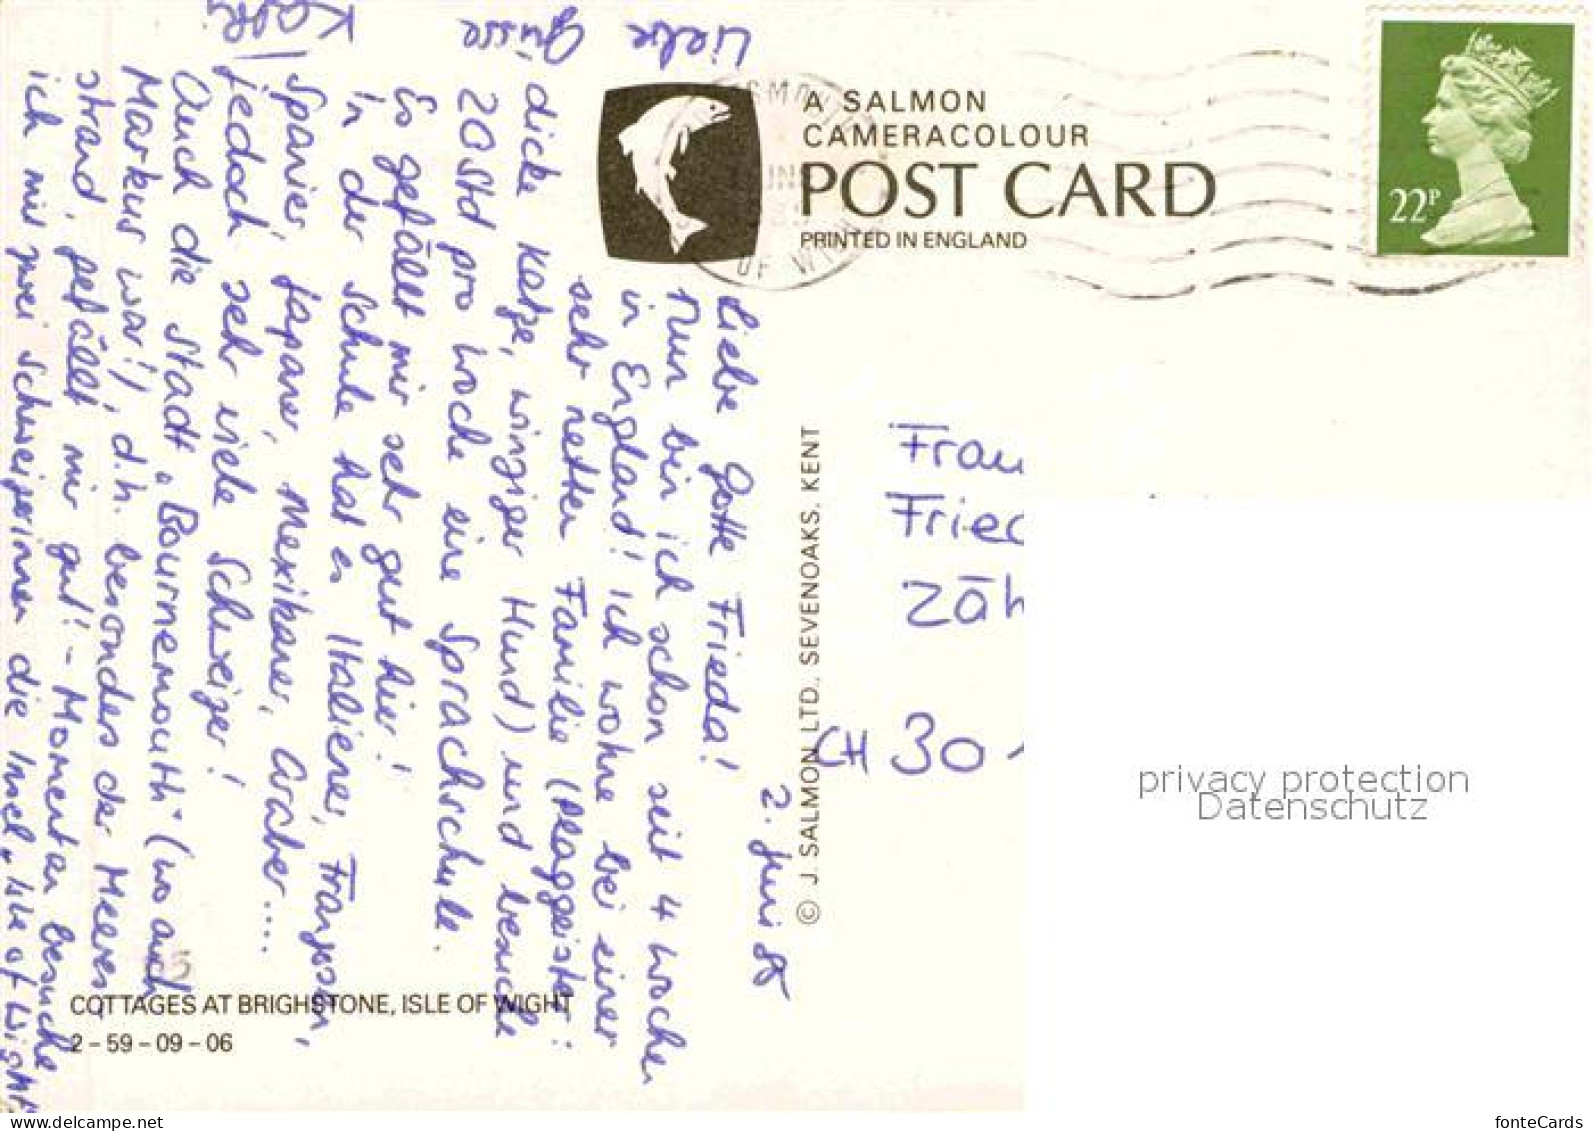 A SALMON
CAMERACOLOUR
POST CARD
PRINTED IN ENGLAND
22P
OF WI
2. Juni 85
Liebe Gotte Frieda!
Nun bin ich schon seit 4 Wochen
in England! Ich wohne bei einer
sehr netten Familie (Plaggeister:
dicke Katze, winziger Hund) und besuche
20 Std pro Woche eine Sprachschule.
Es gefällt mir sehr gut hier!
In der Schule hat es Italiener, Franzosen,
Spanier, Japaner, Mexikaner, Araber....
jedoch sehr viele Schweizer!
Auch die Stadt „Bournemouth" (wo auch
Markus war!), d.h. besonders der Meeres-
strand, gefällt mir gut! - Momentan besuche
ich mit zwei Schweizerinnen die Insel „Isle of Wight"
Liebe
Grüsse
© J. SALMON LTD., SEVENOAKS, KENT
Frau
Fried
Zäh
CH 30
COTTAGES AT BRIGHSTONE, ISLE OF WIGHT
2 – 59 – 09 – 06
privacy protection
Datenschutz
www.delcampe.net
fonteCards